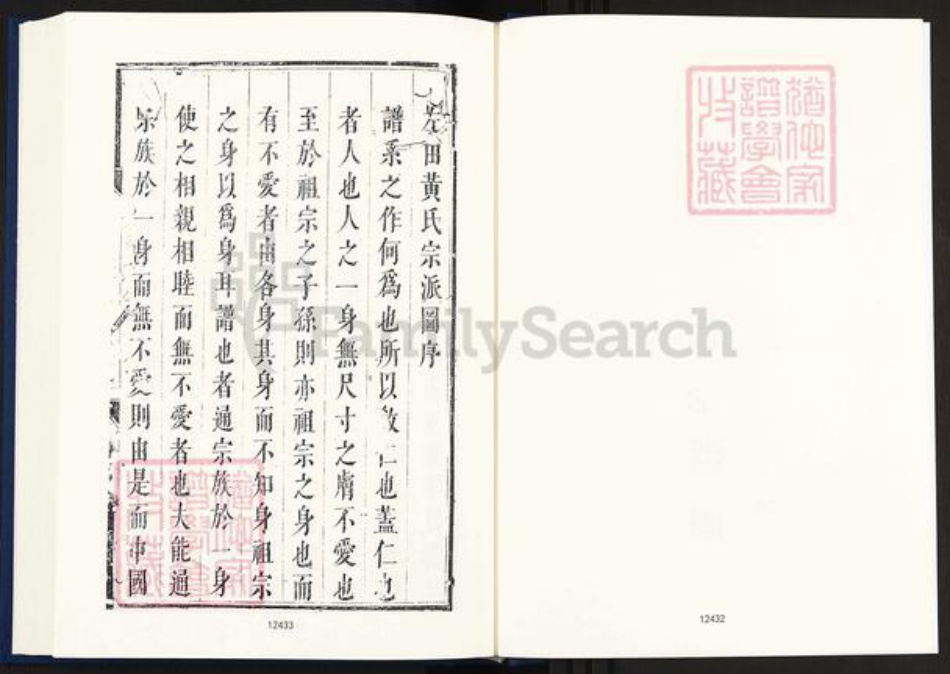 左田黃氏宗派圖序
譜系之作何爲也所以敎仁也蓋仁也
者人也人之一身無尺寸之膚不愛也
至於祖宗之子孫則亦祖宗之身也而
有不愛者由各身其身而不知身祖宗
之身以爲身耳譜也者通宗族於一身
使之相親相睦而無不愛者也夫能通
宗族於一身而無不愛則由是而中國
12433
12432
FamilySearch